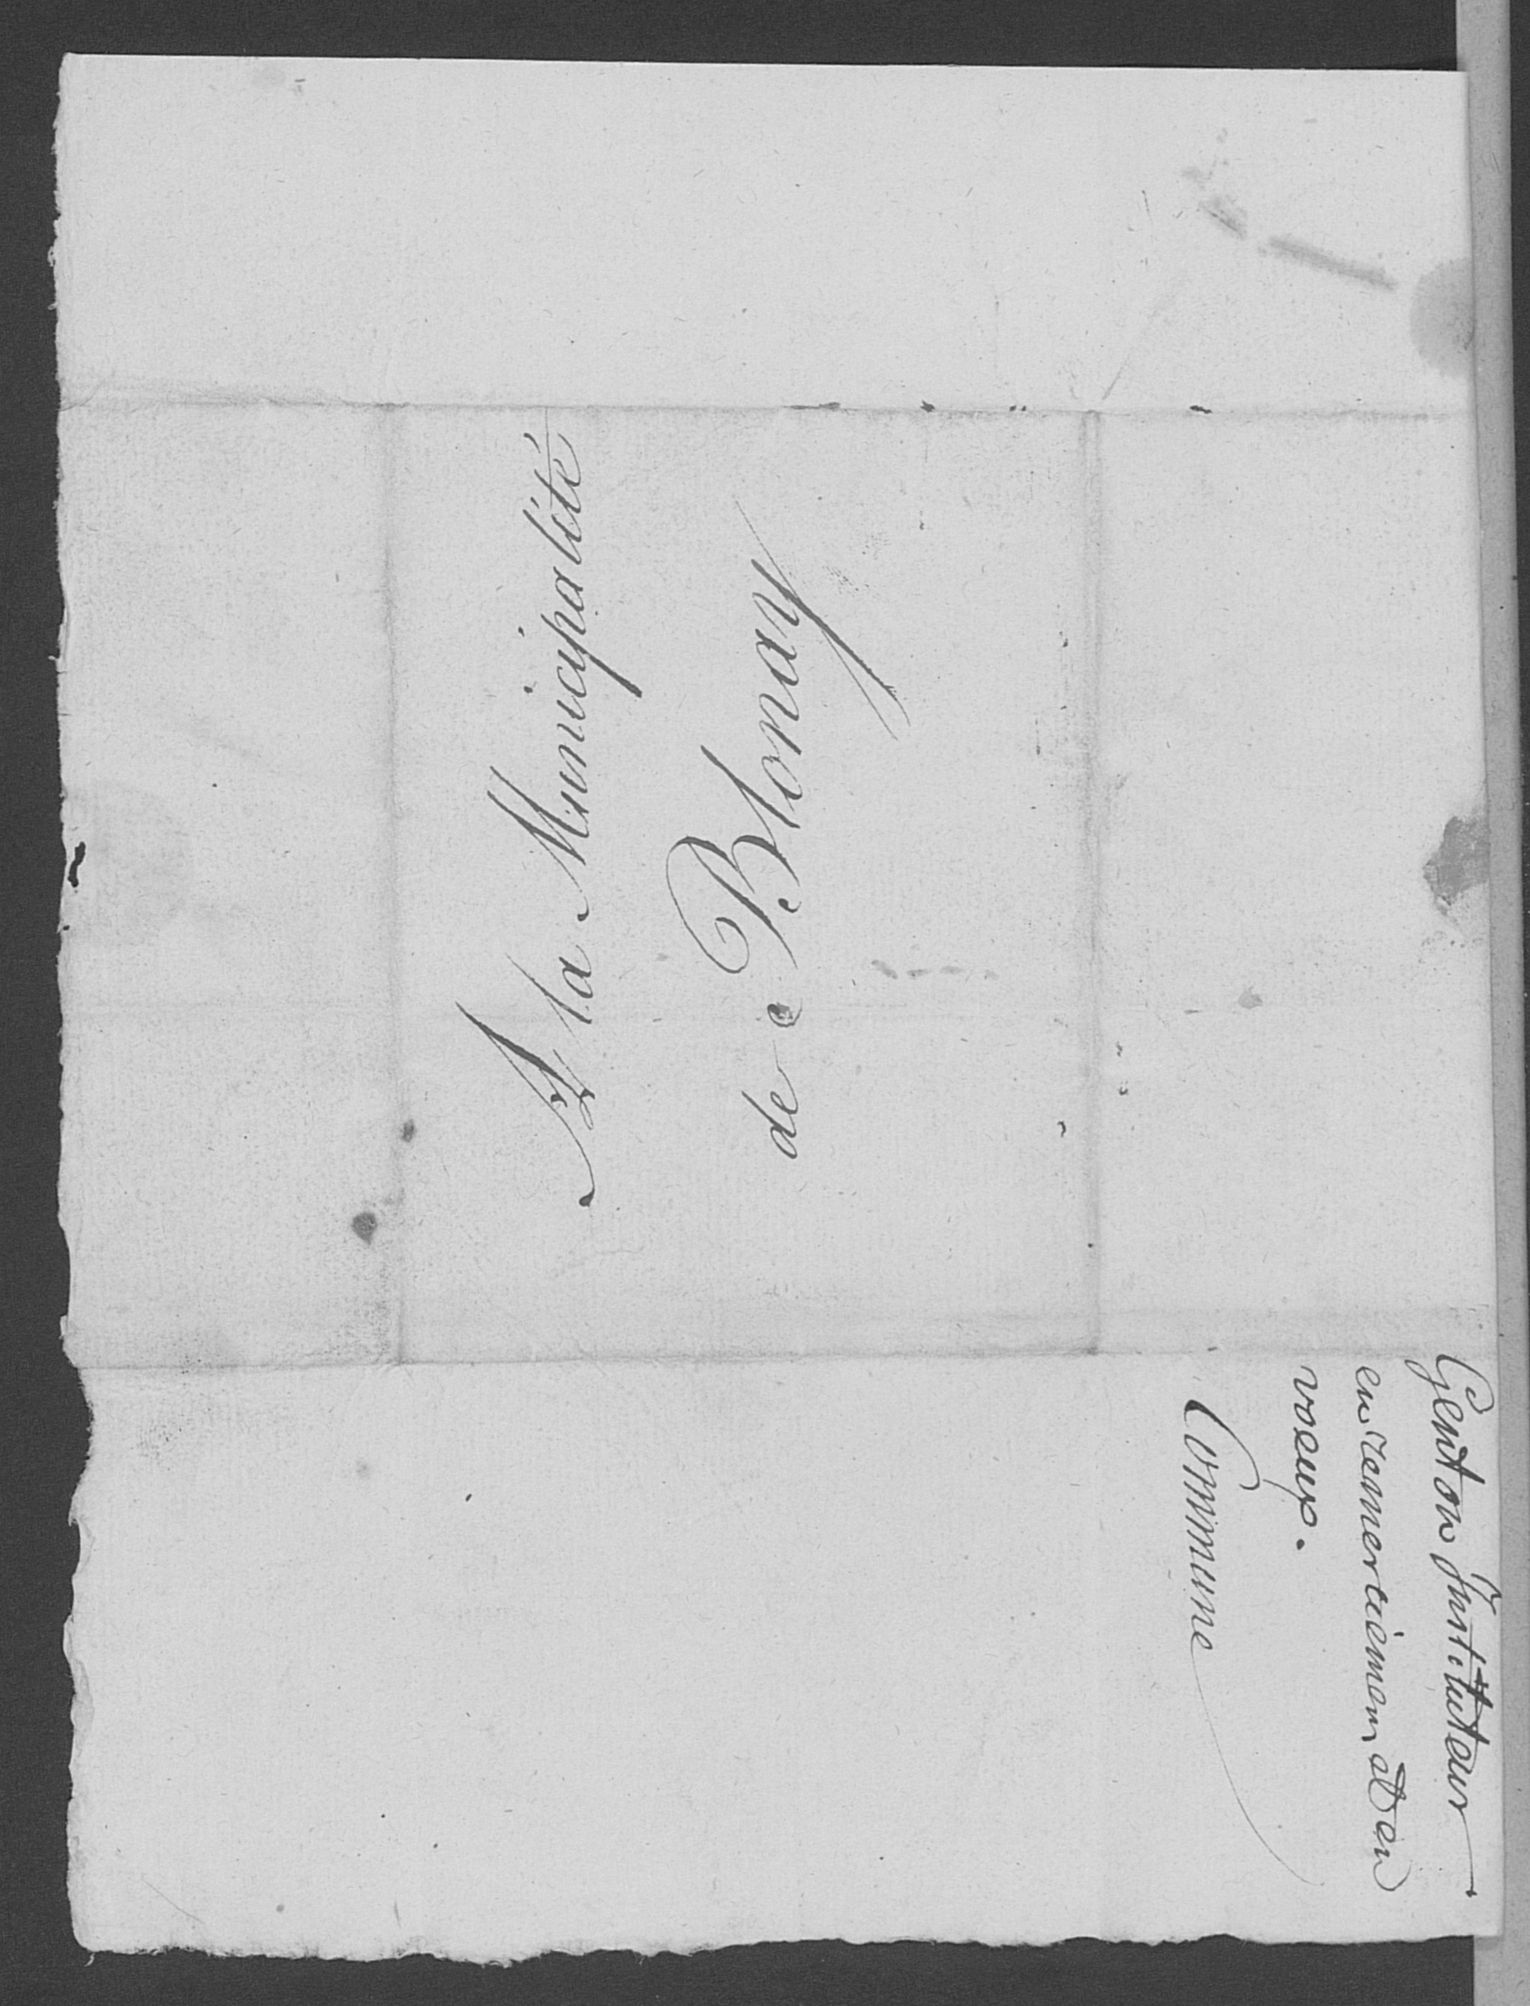 A la Municipalité
de Blonay
Genton Instituteur
en remerciément et en
voeux.
Commune